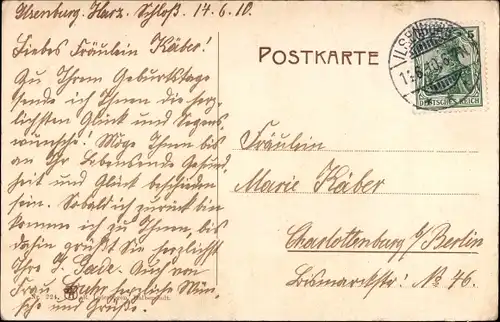 Ilsenburg. Harz. Schloß. 14.6.10.
Liebes Fräulein Käber!
Zu Ihrem Geburtstage
sende ich Ihnen die herz-
lichsten Glück und Segens-
wünsche! Möge Ihnen bis
an Ihr Lebensende Gesund-
heit und Glück beschieden
sein. Sobald ich zurück bin
komme ich zu Ihnen, bis
dahin grüßt Sie herzlichst
Ihre J. Gade. Auch von
Frau herzliche Wün-
sche und Grüße.
Nr. 724
POSTKARTE
ILSENBURG
5
DEUTSCHES REICH
Fräulein
Marie Käber
Charlottenburg b/Berlin
Bismarckstr: No 46.